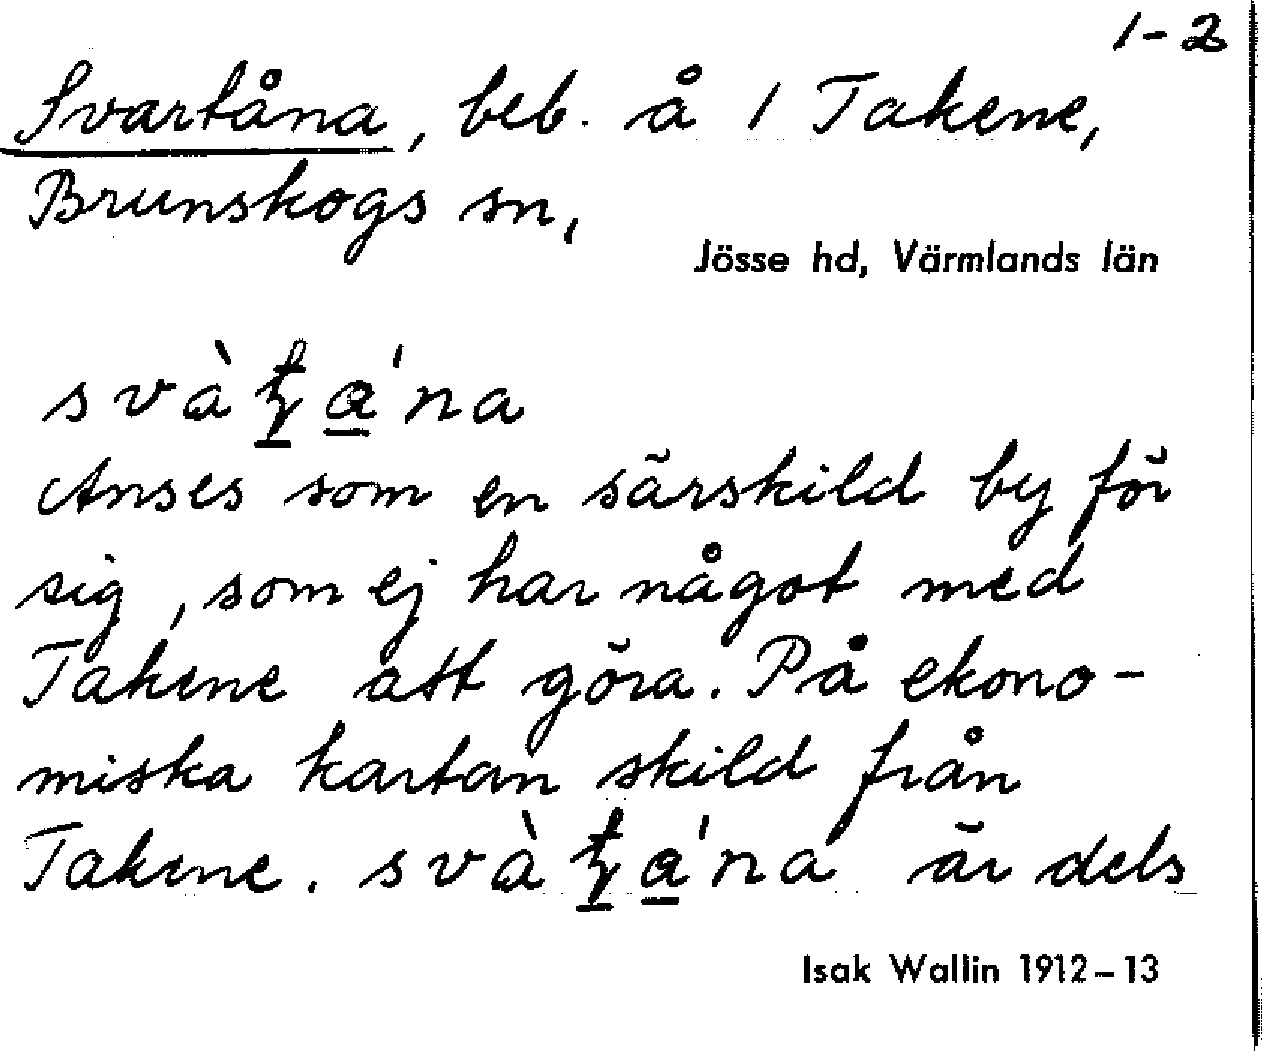 1-2
Svartåna, beb. å 1 Takene,
Brunskogs sn,
Jösse hd, Värmlands län
svà a'na
Anses som en särskild by för
sig, som ej har något med
Takene att göra. På ekono-
miska kartan skild från
Takene. svà a'na är dels
Isak Wallin 1912-13